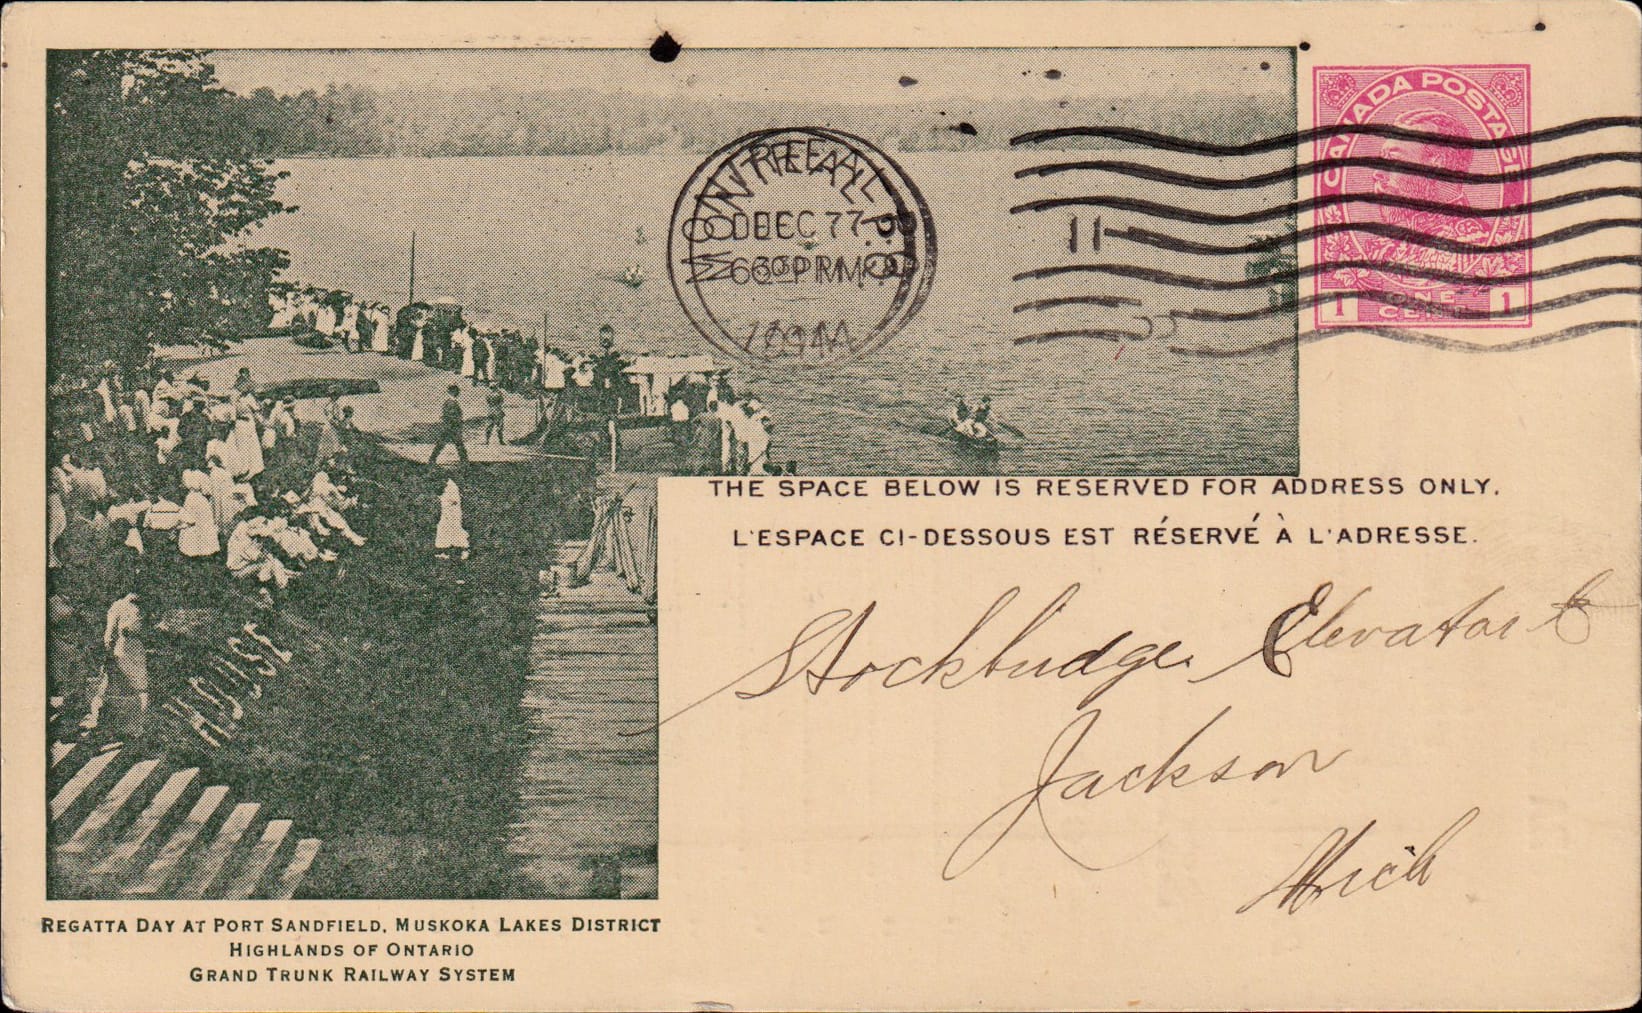 CANADA POSTAGE
1 ONE CENT 1
MONTREAL P.Q.
DEC 7
6 30 PM
11
HOUSE
THE SPACE BELOW IS RESERVED FOR ADDRESS ONLY.
L'ESPACE CI-DESSOUS EST RÉSERVÉ À L'ADRESSE.
Stockbridge Elevator Co
Jackson
Mich
REGATTA DAY AT PORT SANDFIELD, MUSKOKA LAKES DISTRICT
HIGHLANDS OF ONTARIO
GRAND TRUNK RAILWAY SYSTEM